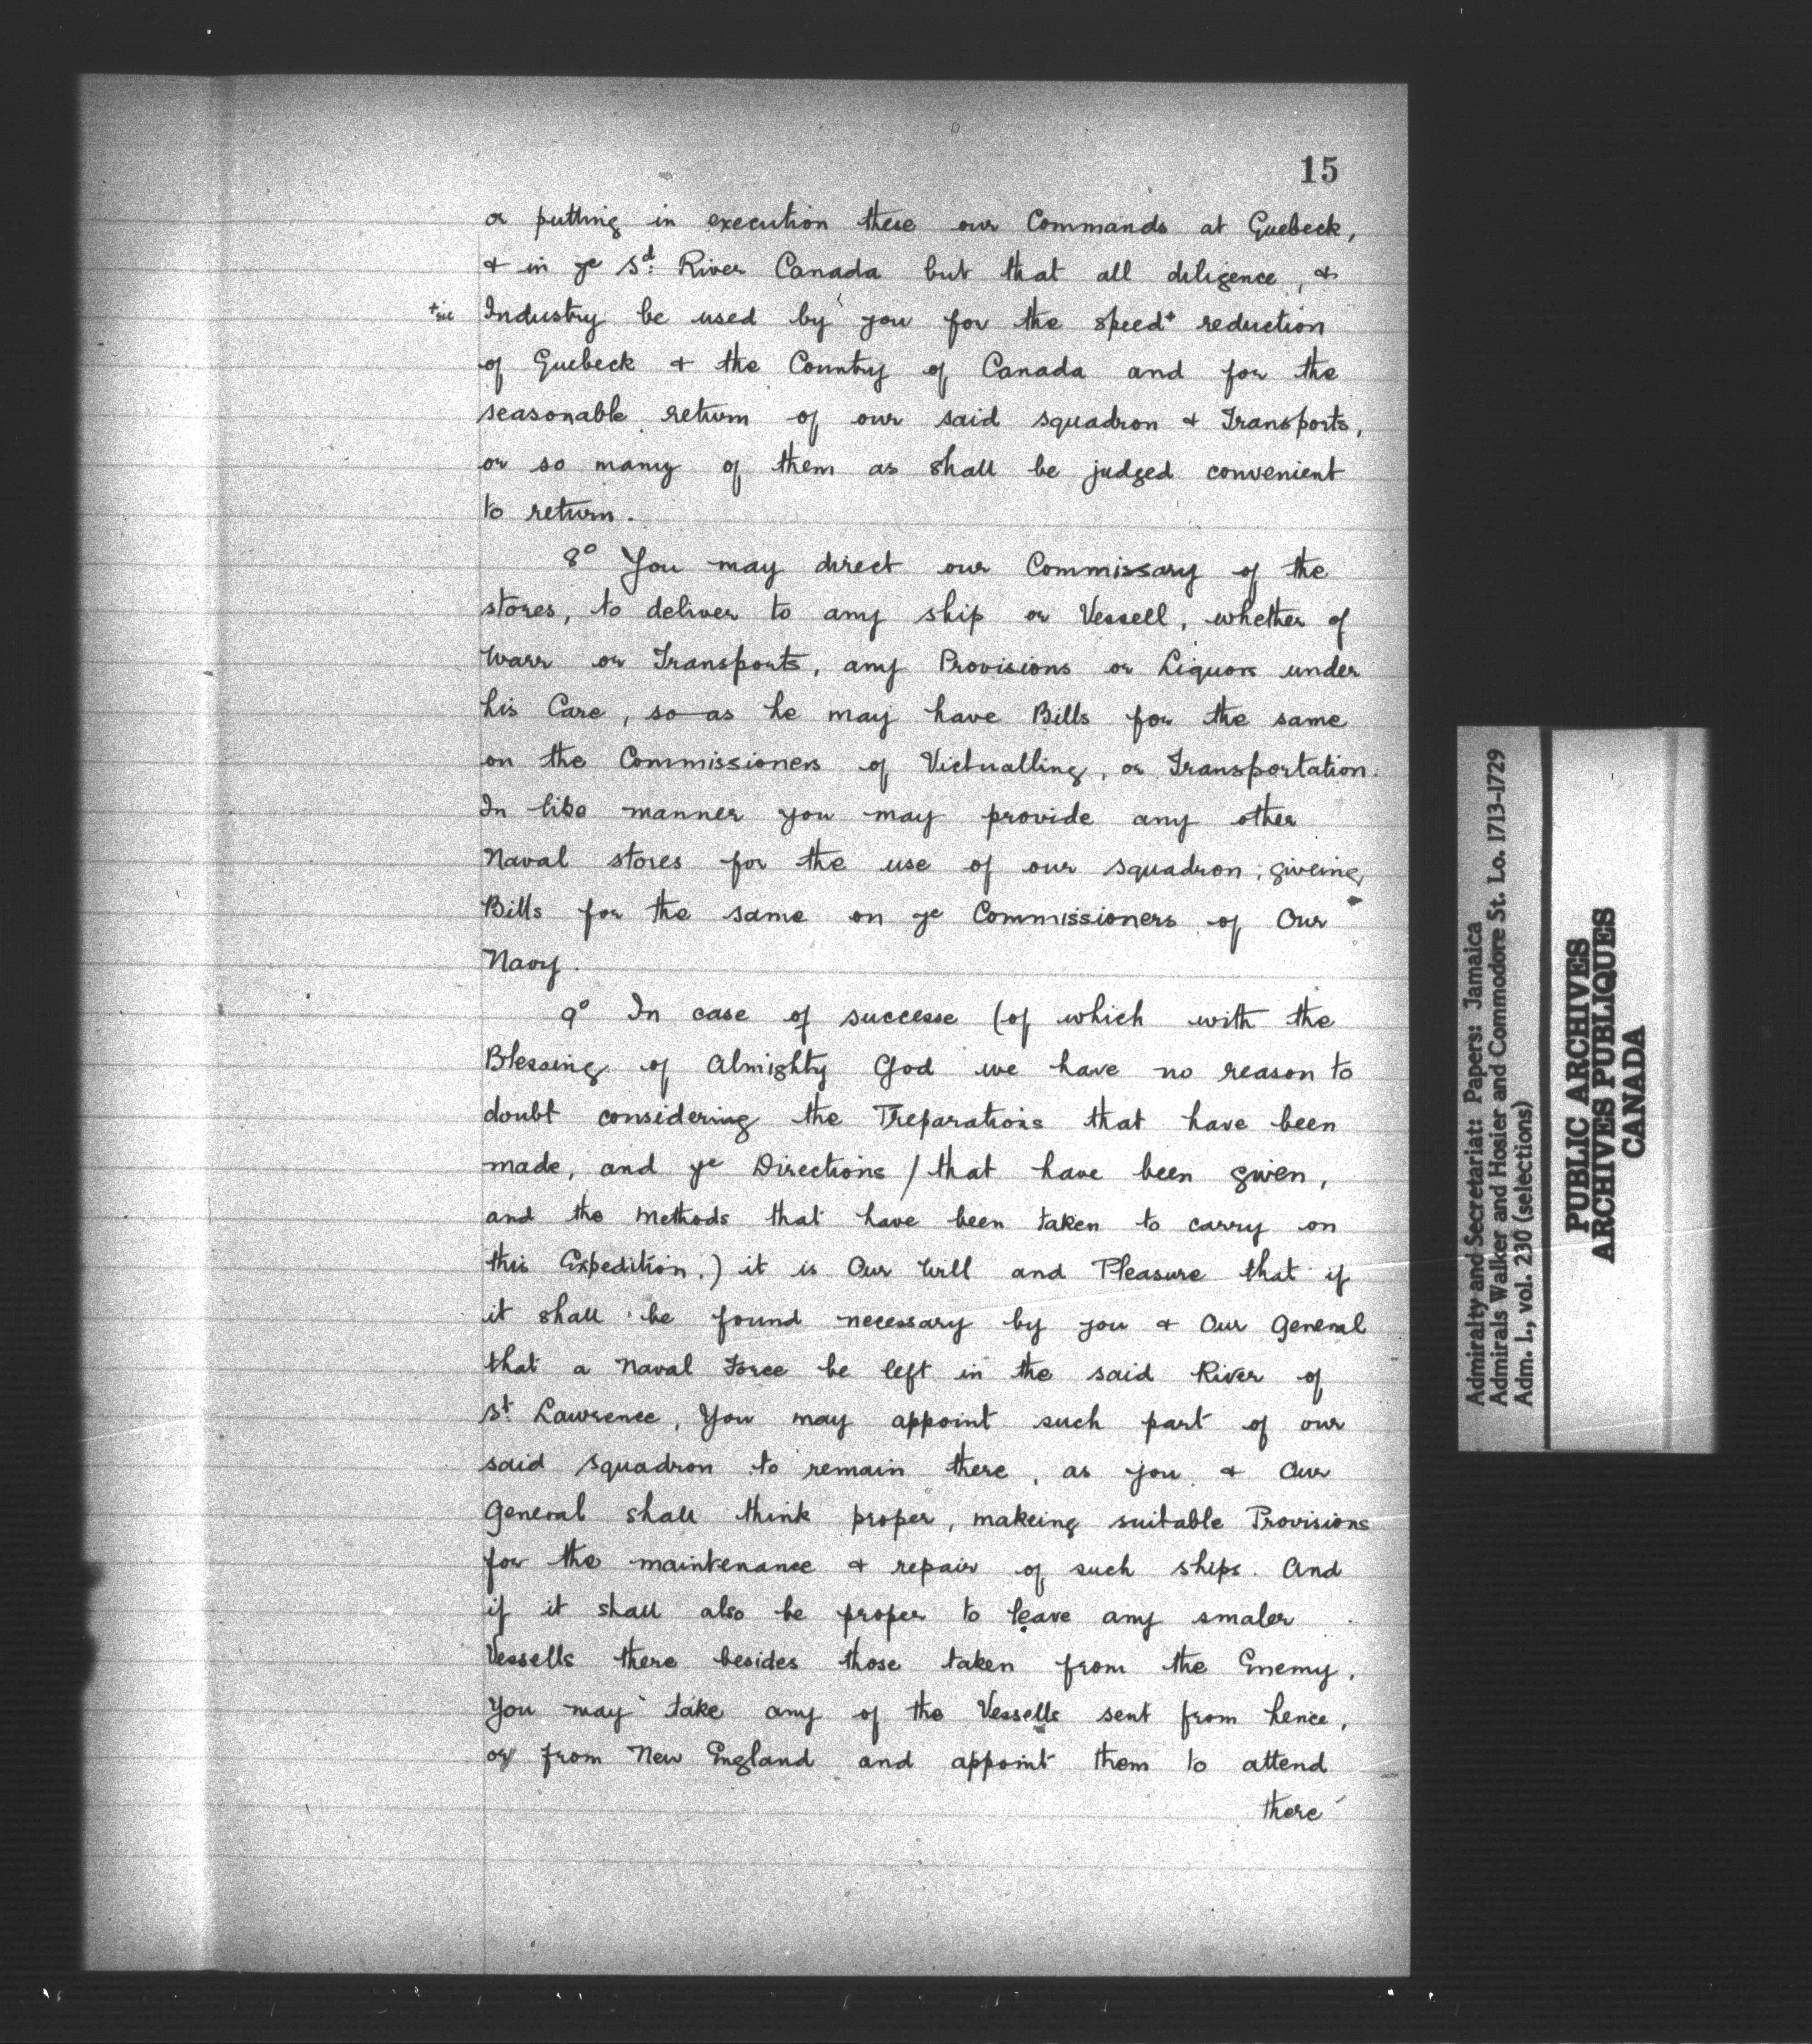 15
or putting in execution these our Commands at Quebeck,
& in ye Sd: River Canada but that all diligence, &
+sic Industry be used by you for the speed+ reduction
of Quebeck & the Country of Canada and for the
seasonable return of our said squadron & Transports,
or so many of them as shall be judged convenient
to return.
8o You may direct our Commissary of the
stores, to deliver to any ship or Vessell, whether of
Warr or Transports, any Provisions or Liquors under
his Care, so as he may have Bills for the same
on the Commissioners of Victualling, or Transportation.
In like manner you may provide any other
Naval stores for the use of our squadron, giveing
Bills for the same on ye Commissioners of Our
Navy.
9o In case of successe (of which with the
Blessing of Almighty God we have no reason to
doubt considering the Preparations that have been
made, and ye Directions / that have been given,
and the methods that have been taken to carry on
this Expedition.) it is Our Will and Pleasure that if
it shall be found necessary by you & Our General
that a Naval Force be left in the said River of
St. Lawrence, You may appoint such part of our
said squadron to remain there, as you & Our
General shall think proper, makeing suitable Provisions
for the maintenance & repair of such ships. And
if it shall also be proper to leave any smaler
Vessells there besides those taken from the Enemy,
You may take any of the Vessells sent from hence,
or from New England and appoint them to attend
there
Admiralty and Secretariat: Papers: Jamaica
Admirals Walker and Hosier and Commodore St. Lo. 1713-1729
Adm. 1., vol. 230 (selections)
PUBLIC ARCHIVES
ARCHIVES PUBLIQUES
CANADA